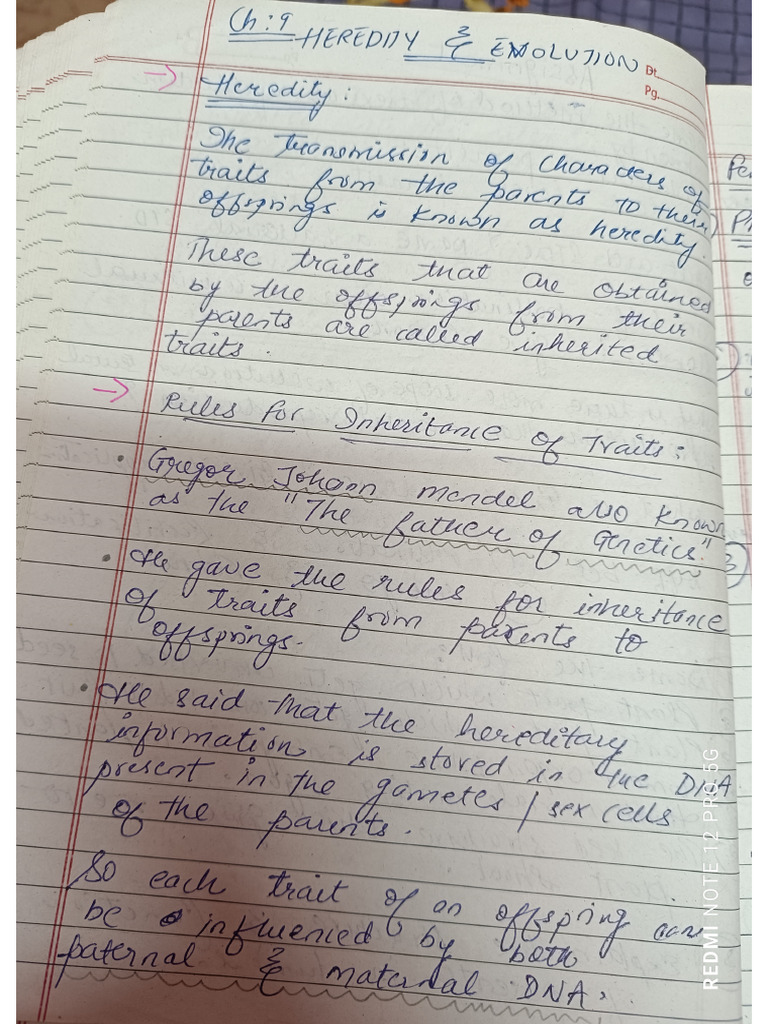 Ch : 9 HEREDITY & EVOLUTION
Dt.
Pg.
→ Heredity :
The transmission of characters of
traits from the parents to their
offsprings is known as heredity.
These traits that are obtained
by the offsprings from their
parents are called inherited
traits.
→ Rules for Inheritance of Traits :
• Gregor Johann mendel also known
as the "The father of Genetics."
• He gave the rules for inheritance
of traits from parents to
offsprings.
• He said that the hereditary
information is stored in the DNA
present in the gametes / sex cells
of the parents.
So each trait of an offspring can
be influenced by both
paternal & maternal DNA.
REDMI NOTE 12 PRO 5G